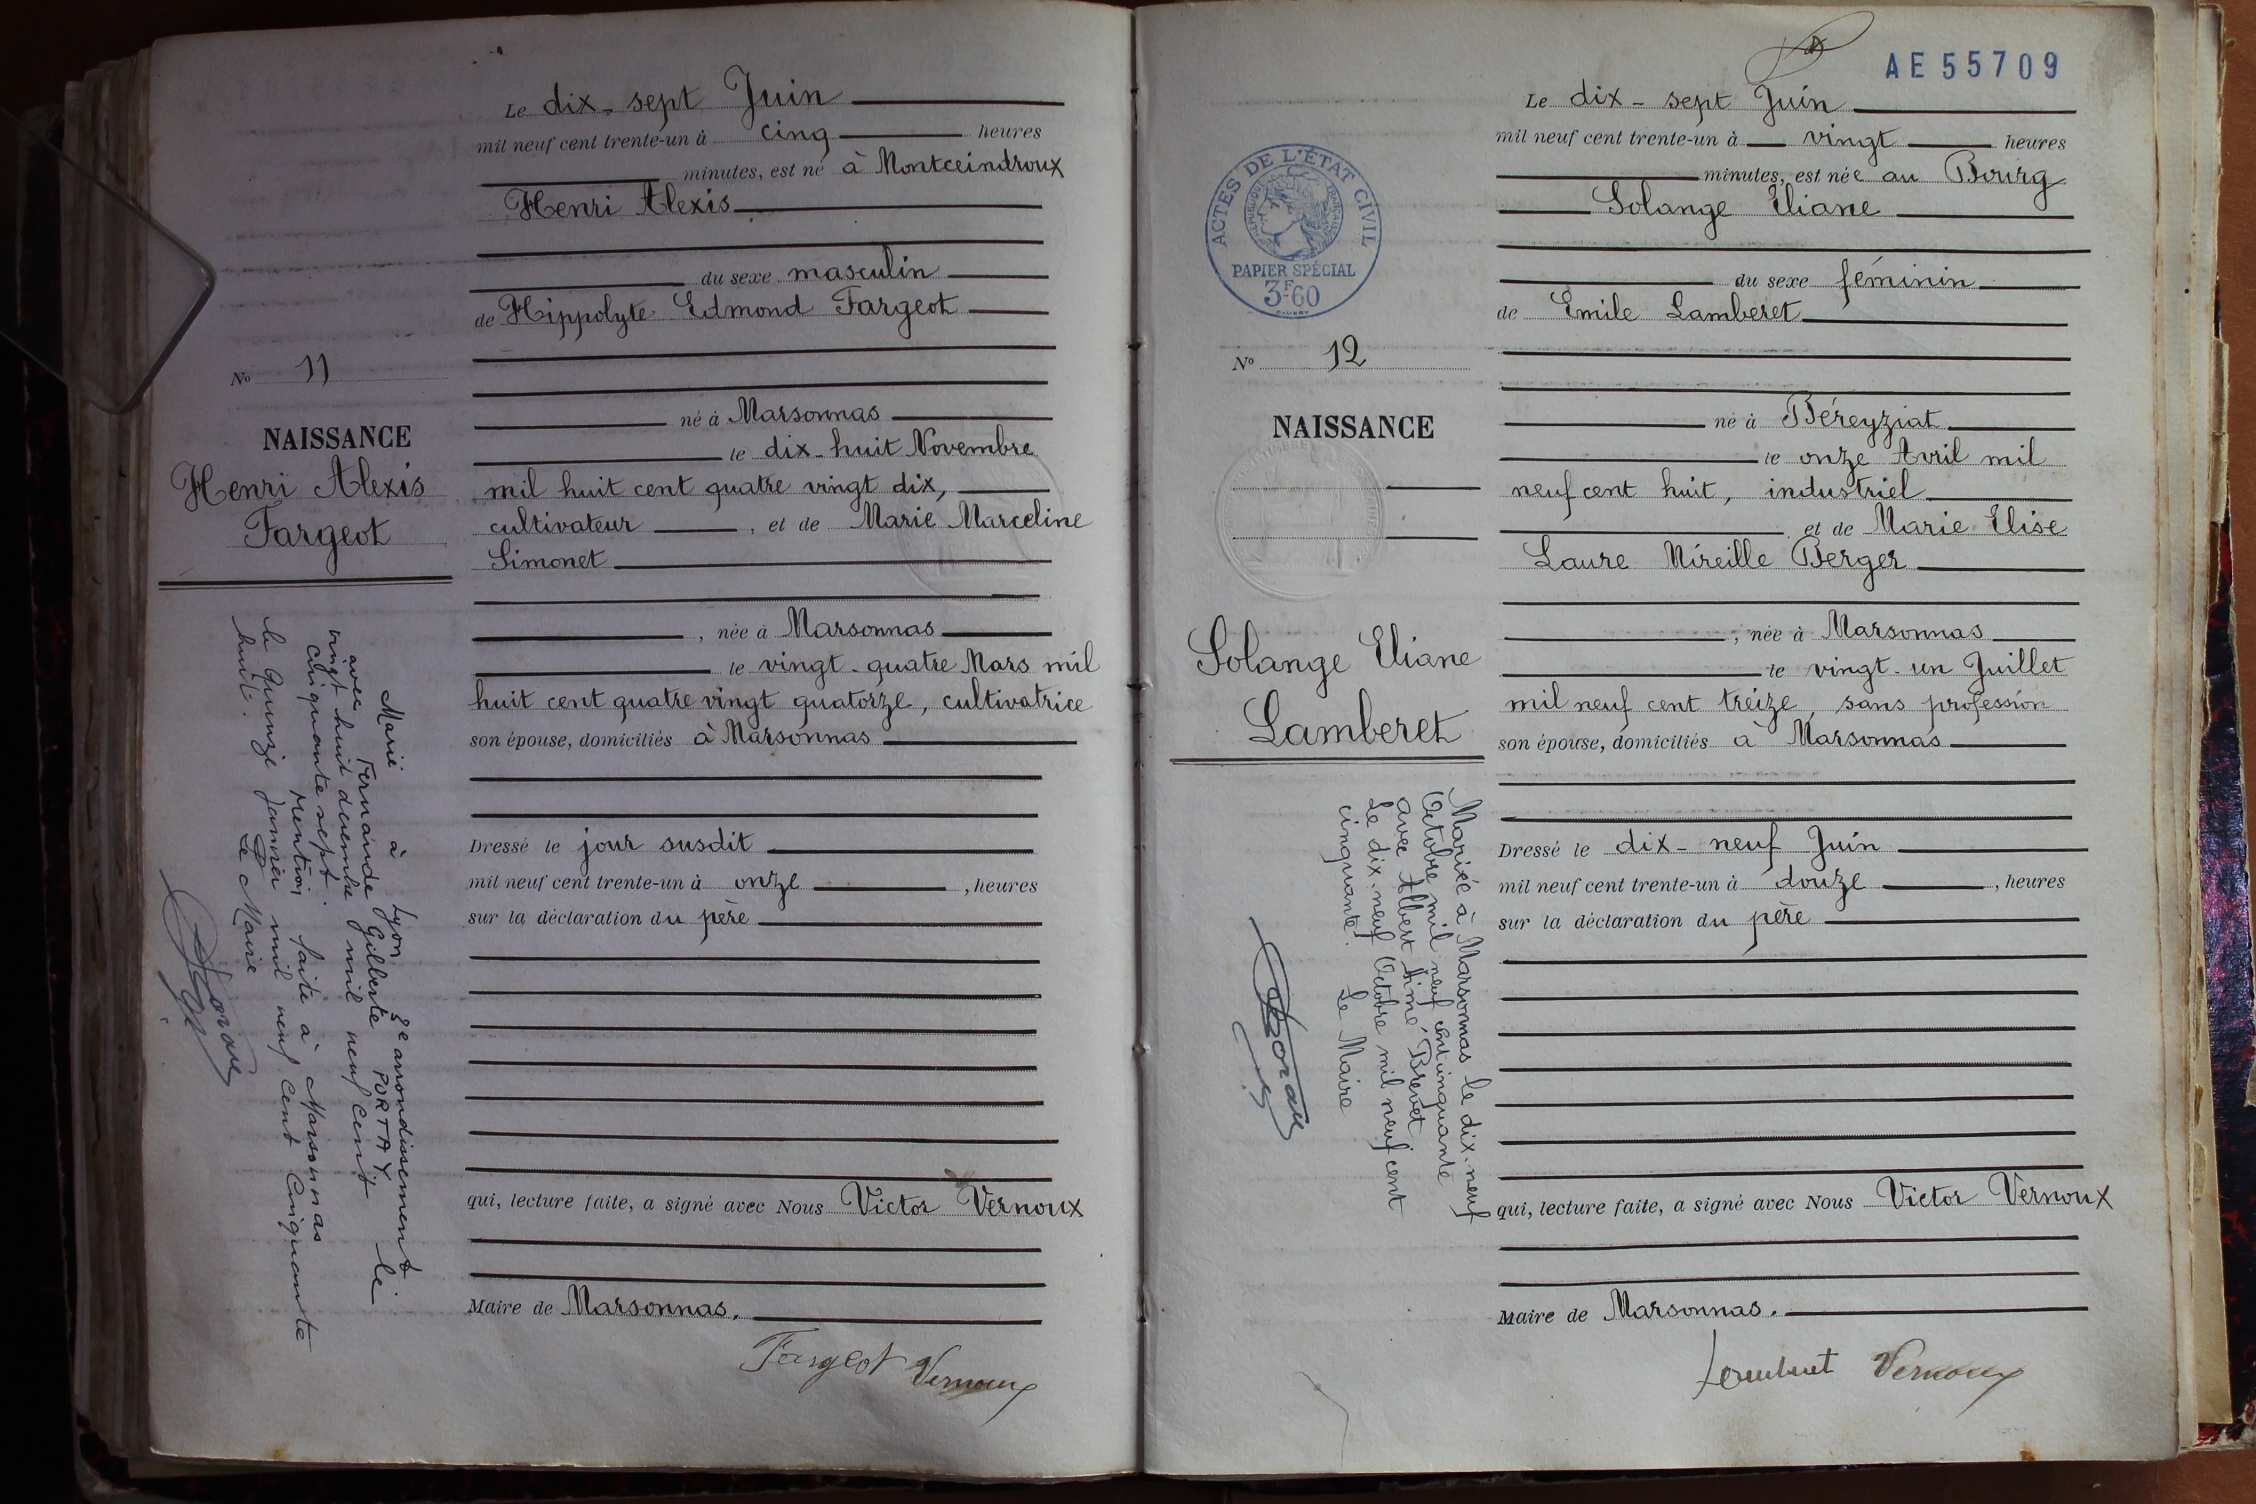 Le dix-sept Juin
mil neuf cent trente-un à cinq heures
minutes, est né à Montceindroux
Henri Alexis
du sexe masculin
de Hippolyte Edmond Fargeot
né à Marsonnas
le dix-huit Novembre
mil huit cent quatre vingt dix,
cultivateur, et de Marie Marceline
Simonet
, née à Marsonnas
le vingt-quatre Mars mil
huit cent quatre vingt quatorze, cultivatrice
son épouse, domiciliés à Marsonnas
Dressé le jour susdit
mil neuf cent trente-un à onze, heures
sur la déclaration du père
qui, lecture faite, a signé avec Nous Victor Vernoux
Maire de Marsonnas.
Fargeot Vernoux
No 11
NAISSANCE
Henri Alexis
Fargeot
Marié à Lyon 8e arrondissement
avec Fernande Gilberte PORTAY le
vingt huit décembre mil neuf cent
cinquante sept.
Mention faite à Marsonnas
le quinze Janvier mil neuf cent cinquante
huit. Le Maire
AE 55709
Le dix-sept Juin
mil neuf cent trente-un à vingt heures
minutes, est née au Bourg
Solange Eliane
du sexe féminin
de Emile Lamberet
né à Béreyziat
le onze Avril mil
neuf cent huit, industriel
et de Marie Elise
Laure Mireille Berger
, née à Marsonnas
le vingt-un Juillet
mil neuf cent treize, sans profession
son épouse, domiciliés à Marsonnas
Dressé le dix-neuf Juin
mil neuf cent trente-un à douze, heures
sur la déclaration du père
qui, lecture faite, a signé avec Nous Victor Vernoux
Maire de Marsonnas.
Lamberet Vernoux
ACTES DE L'ÉTAT CIVIL
PAPIER SPÉCIAL
3F60
No 12
NAISSANCE
Solange Eliane
Lamberet
Mariée à Marsonnas le dix-neuf
Octobre mil neuf cent cinquante
avec Albert Aimé Brevet
Le dix-neuf Octobre mil neuf cent
cinquante. Le Maire